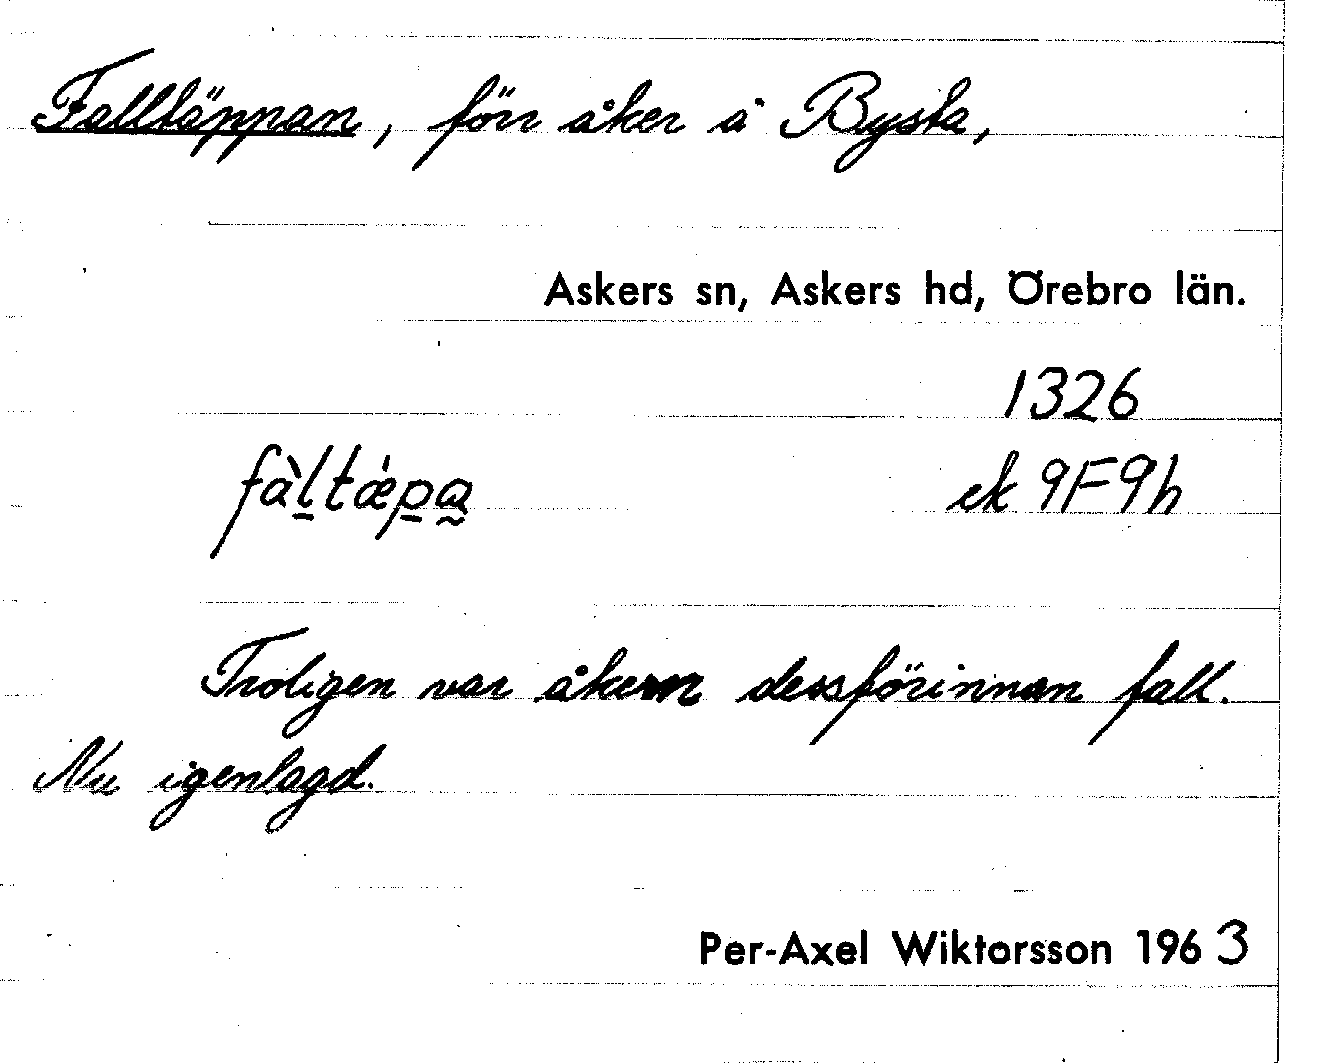 Falltäppan, förr åker å Bysta,
Askers sn, Askers hd, Örebro län.
1326
fàl̠tǽp̠a̰ ek 9F9h
Troligen var åkern dessförinnan fall.
Nu igenlagd.
Per-Axel Wiktorsson 1963